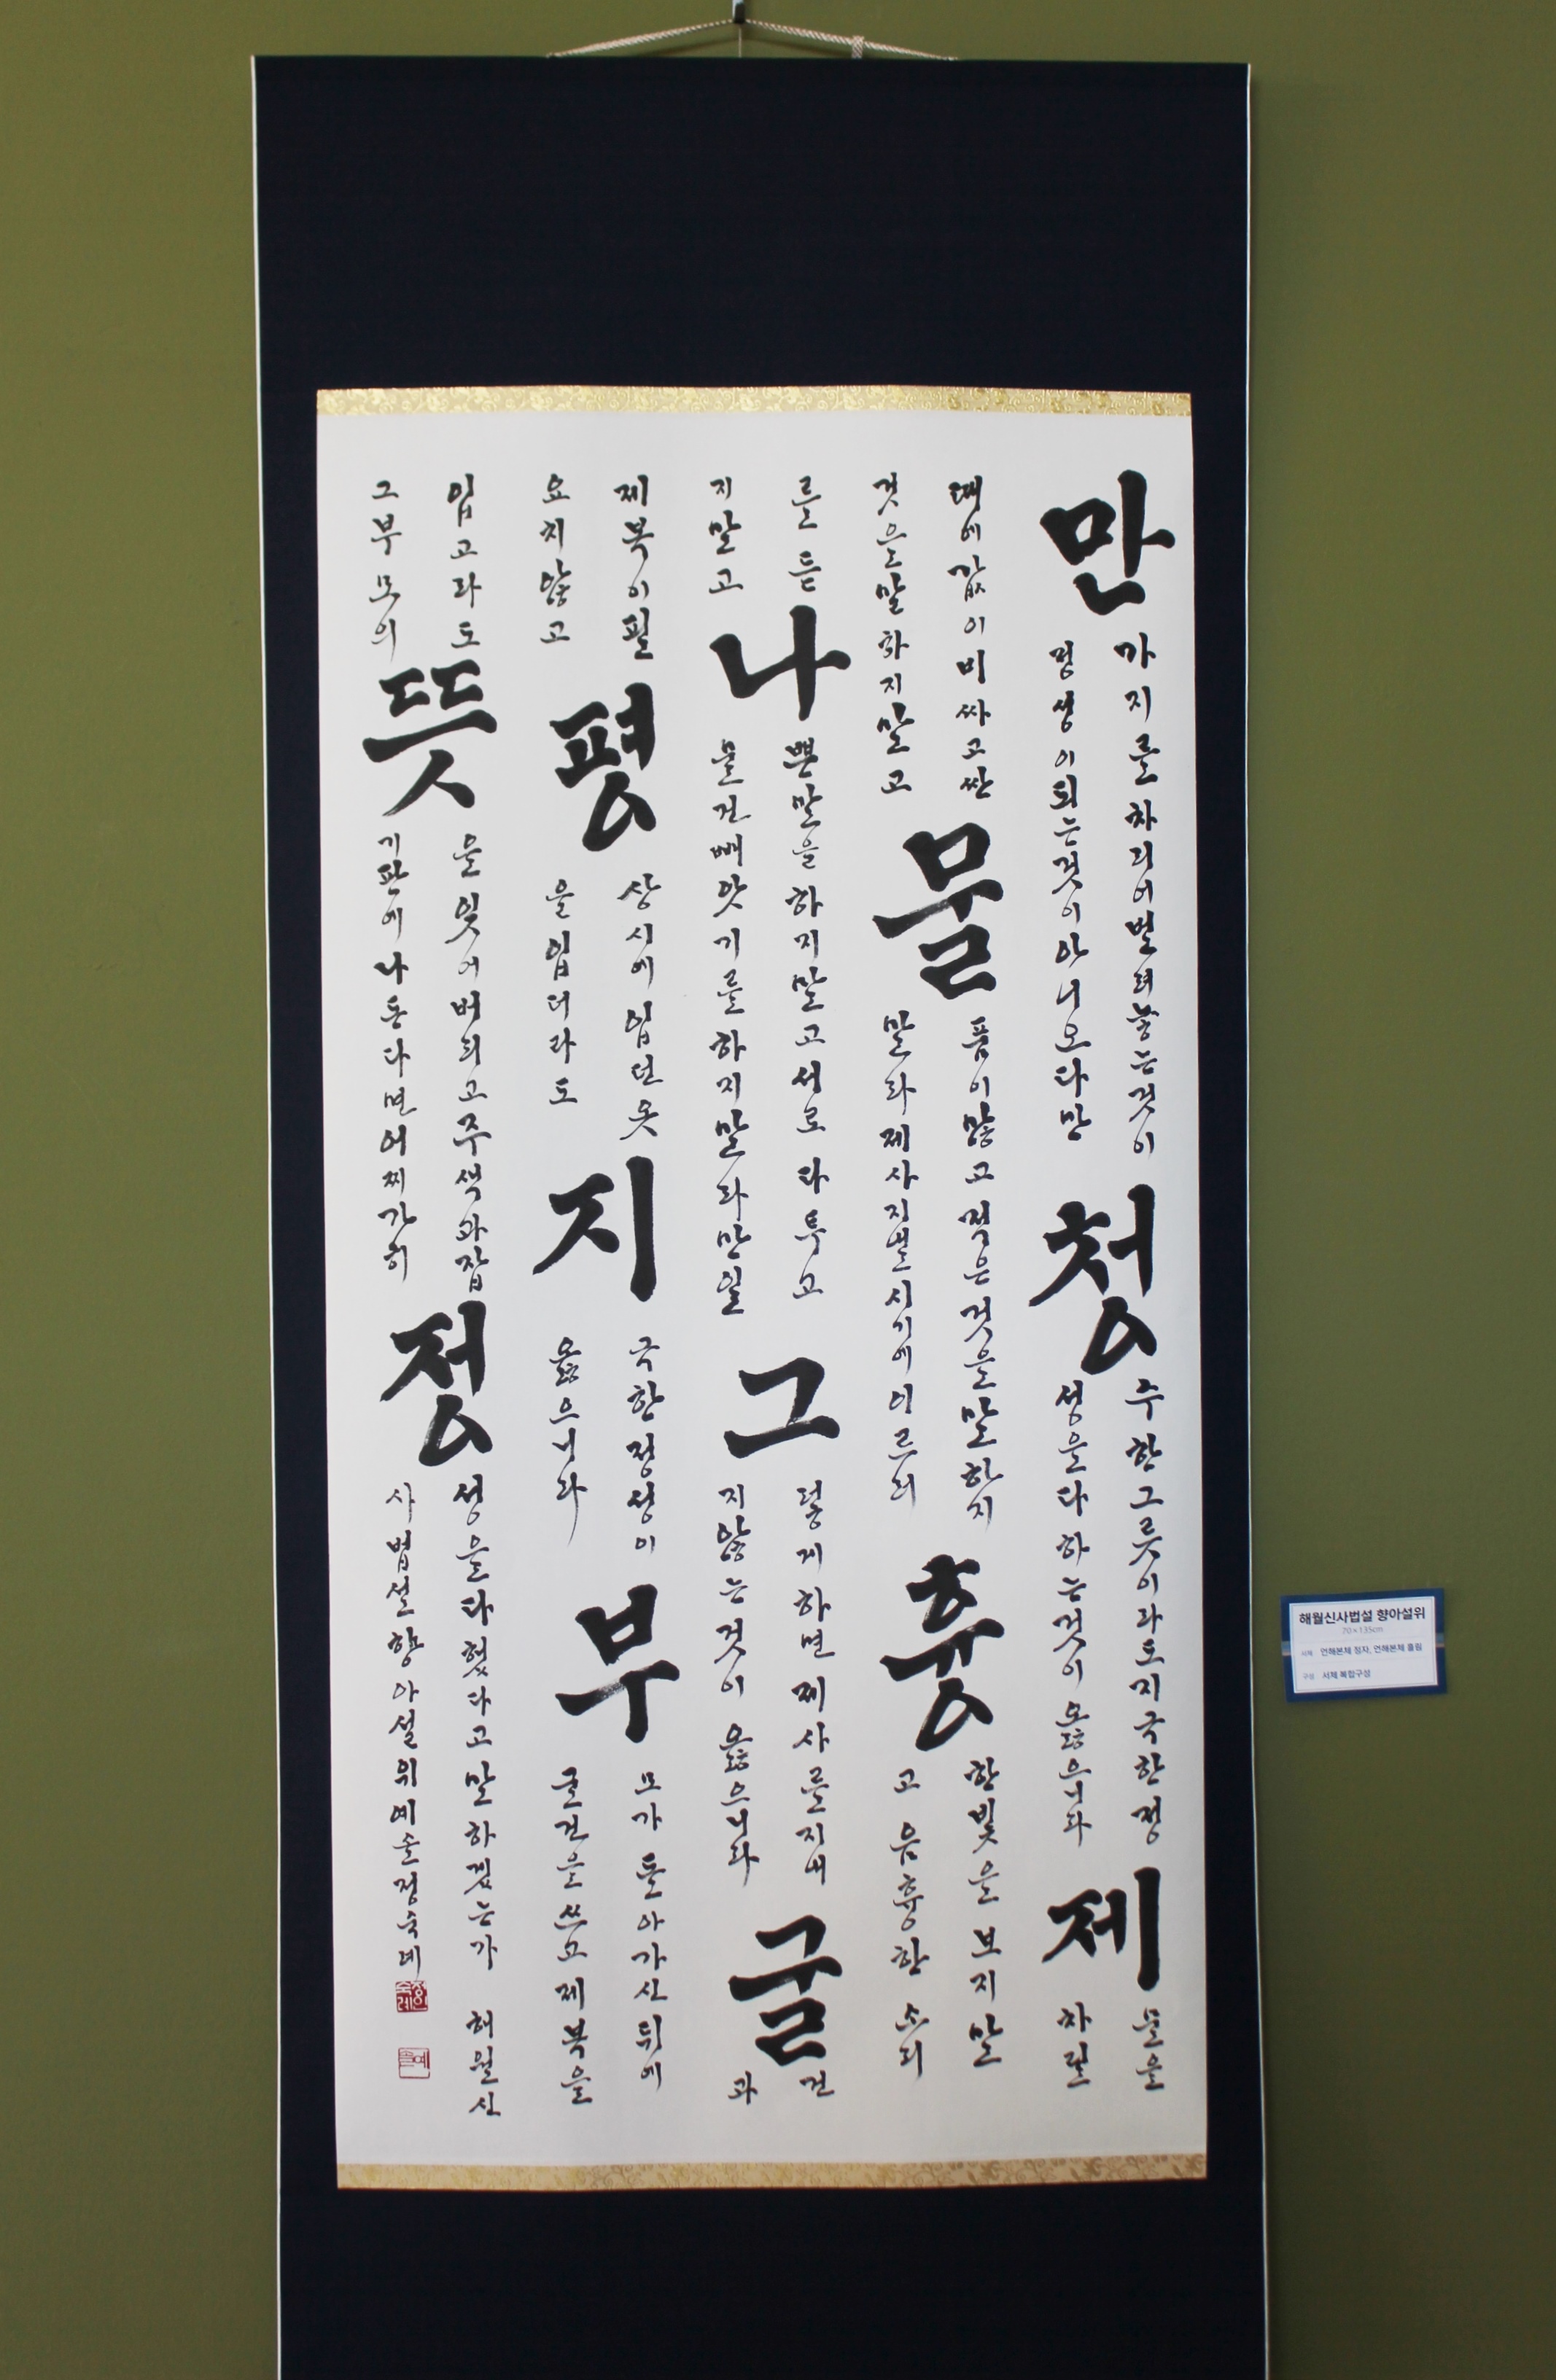 만
가지를차리어벌려놓는것이
정성이되는것이아니오다만
청
수한그릇이라도지극한정
성을다하는것이옳으니라
제
물을
차릴
때에값이비싸고싼
것을말하지말고
물
품이많고적은것을말하지
말라제사지낼시기에이르러
흉
한빛을보지말
고음흉한소리
를듣
지말고
나
쁜말을하지말고서로다투고
물건빼앗기를하지말라만일
그
렇게하면제사를지내
지않는것이옳으니라
굴
건
과
제복이필
요치않고
평
상시에입던옷
을입더라도
지
극한정성이
옳으니라
부
모가돌아가신뒤에
굴건을쓰고제복을
입고라도
그부모의
뜻
을잊어버리고주색과잡
기판에나든다면어찌가히
정
성을다했다고말하겠는가 해월신
사법설향아설위예솔정숙례
해월신사법설 향아설위
70×135cm
서체 언해본체 정자, 언해본체 흘림
구성 서체 복합구성